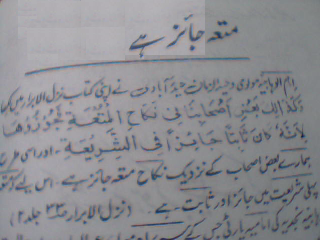 متعہ جائز ہے
امام الوہابیہ مولوی وحید الزمان حیدرآبادی نے اپنی کتاب نزل الابرار میں کہا
وَكَذٰلِكَ بَعْضُ اَصْحَابِنَا فِي نِكَاحِ الْمُتْعَةِ فَجَوَّزُوْهَا
لِاَنَّهٗ كَانَ ثَابِتًا جَائِزًا فِي الشَّرِيْعَةِ ۔ اور اسی طرح
ہمارے بعض اصحاب کے نزدیک نکاح متعہ جائز ہے۔ اس لیے کہ وہ
پہلی شریعت میں جائز اور ثابت ہے۔ (نزل الابرار ص۳۳ جلد ۲)